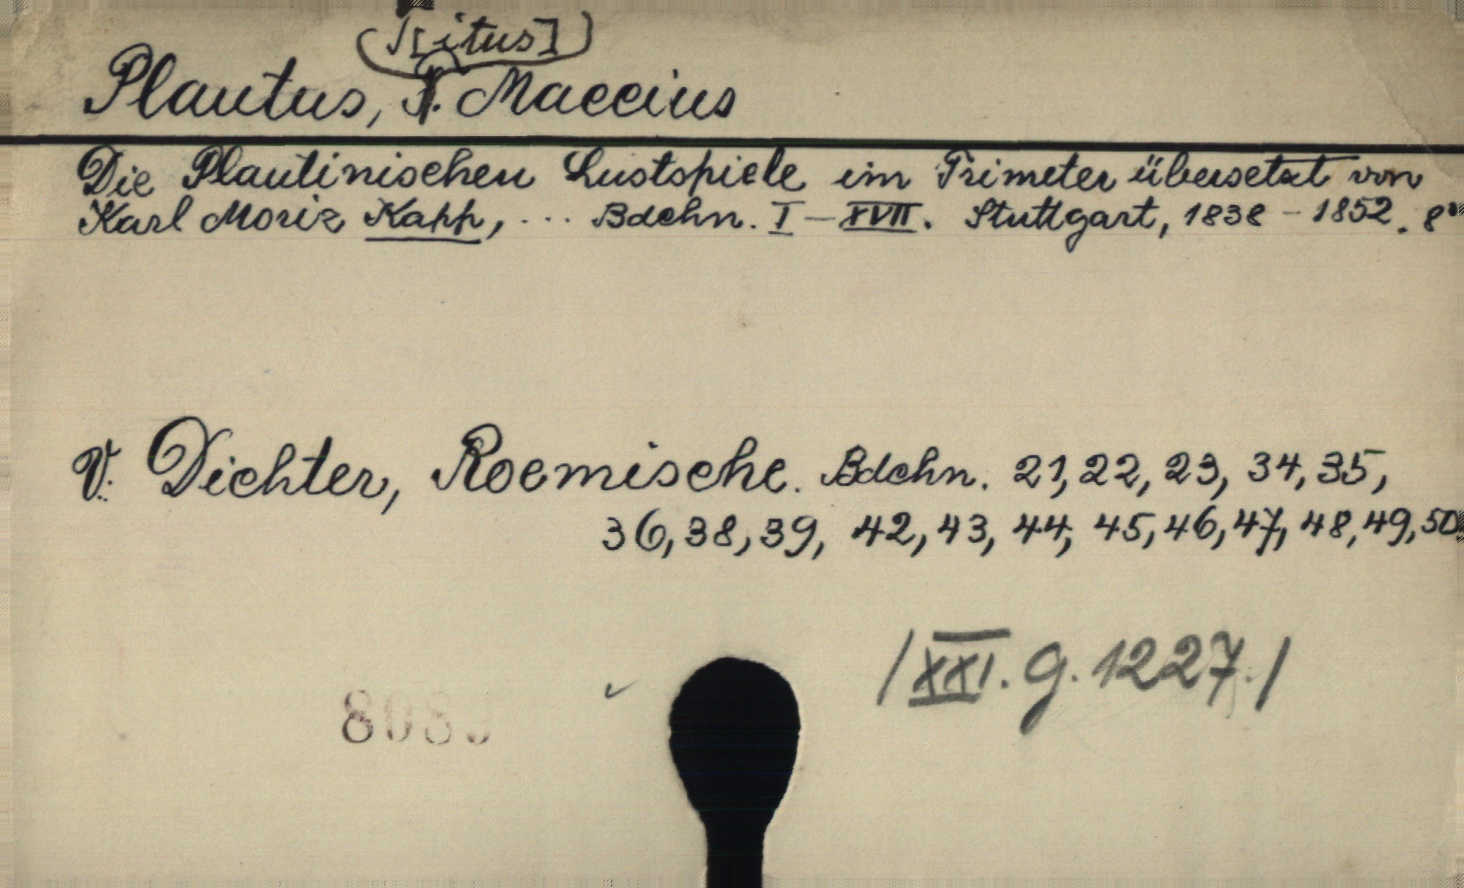 (T[itus])
Plautus, T. Maccius
Die Plautinischen Lustspiele im Trimeter übersetzt von
Karl Moriz Rapp, ... Bdchn. I–XVII. Stuttgart, 1838–1852. 8°
V. Dichter, Roemische. Bdchn. 21, 22, 23, 34, 35,
36, 38, 39, 42, 43, 44, 45, 46, 47, 48, 49, 50
/XXI. g. 1227./